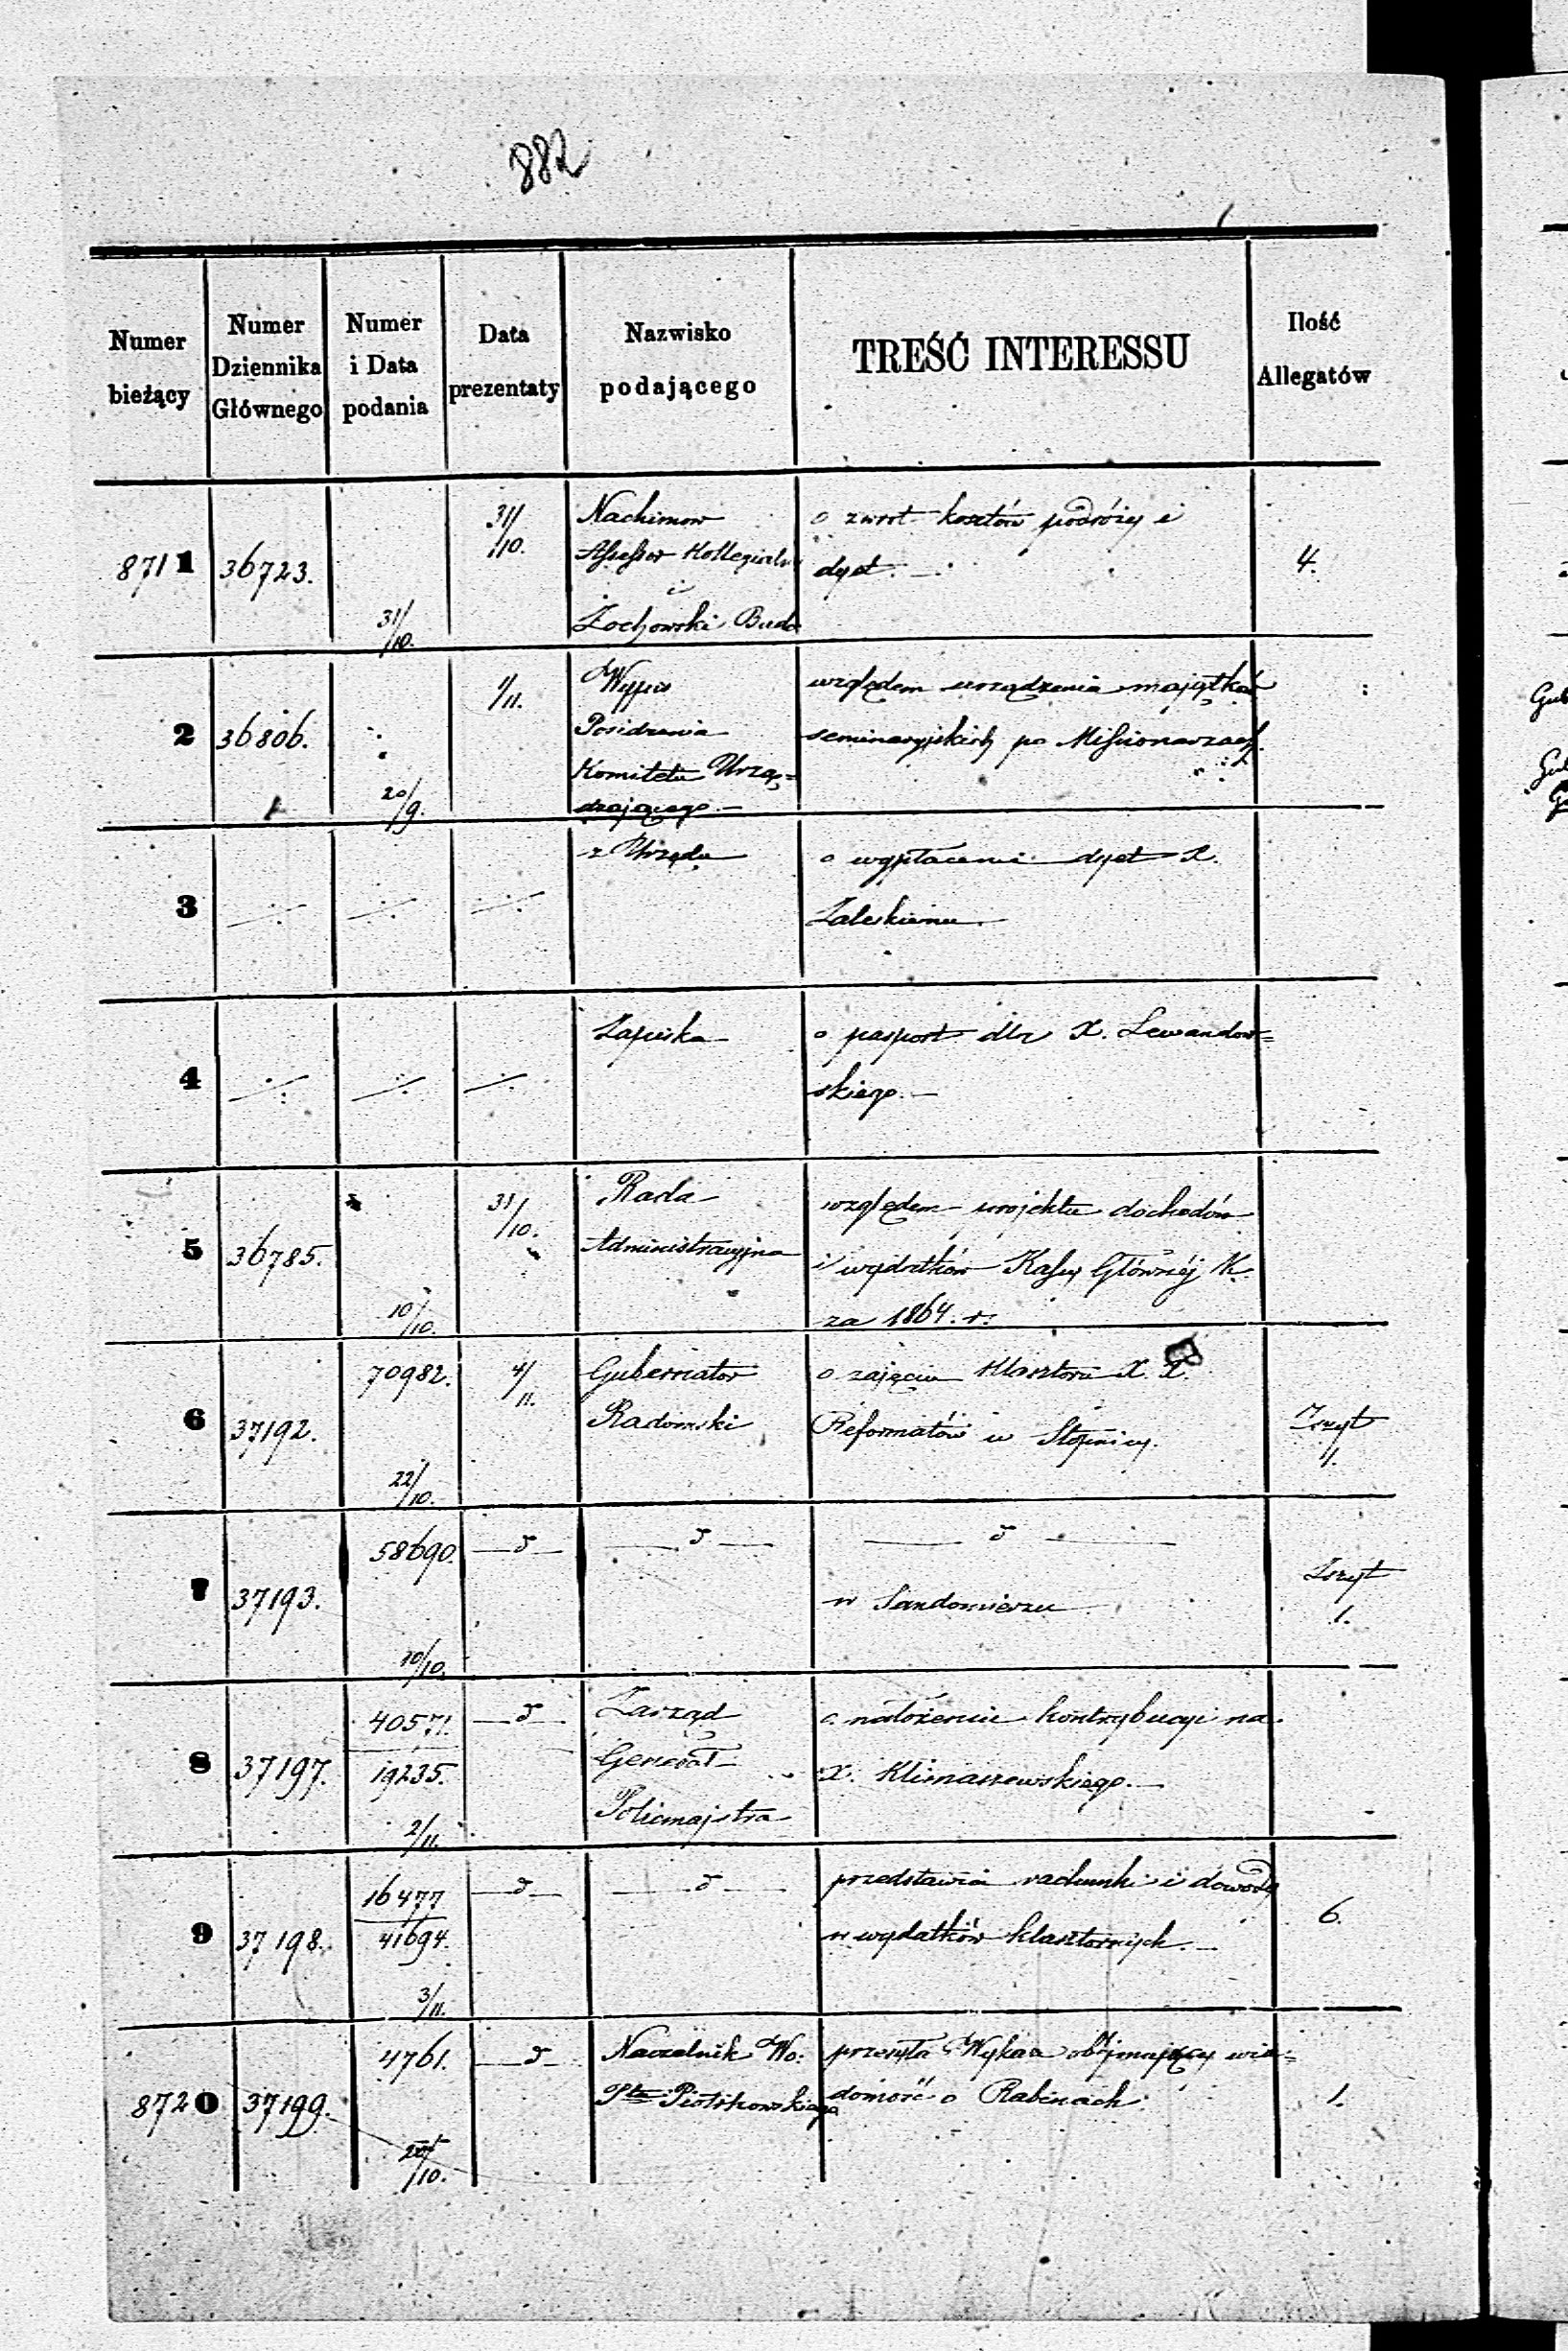 882
Numer bieżący
Numer Dziennika Głównego
Numer i Data podania
Data prezentaty
Nazwisko podającego
TREŚĆ INTERESSU
Ilość Allegatów
8711 36723. 31/10. 31/10. Nachimow o zwrot kosztów podróży i 4.
Assessor Kollegialn dyet. —
i
Żochowski Bud
2 36806. 20/9. 1/11. Wypis względem urządzenia majątków
Posidzenia seminaryjskich po Missionarzach.
Komitetu Urzą=
dzającego. —
3 ·/· ·/· ·/· z Urzędu o wypłacenie dyet X.
Zaleskiemu.
4 ·/· ·/· ·/· Zapiska o pasport dla X. Lewandow=
skiego. —
5 36785. 10/10. 31/10. Rada względem projektu dochodów
Administracyjna i wydatków Kassy Głównéj K.
za 1864. r.
6 37192. 70982. 22/10. 4/11. Gubernator o zajęciu Klasztoru X. X.
Radomski Reformatów w Stopnicy. Zszyt 1.
7 37193. 58690. 10/10. — d — — d — — d —
w Sandomierzu Zszyt 1.
8 37197. 40571. 19235. 2/11. — d — Zarząd o nałożeniu kontrybucyi na
Generał X. Klimaszewskiego. —
Policmajstra
9 37198. 16477 41694. 3/11. — d — — d — przedstawia rachunki i dowody 6.
wydatków klasztornych. —
8720 37199. 4761. /10. — d — Naczelnik Wo: przesyła Wykaz obejmujący wia=
Piotrkowskiego domość o Rabinach. 1.